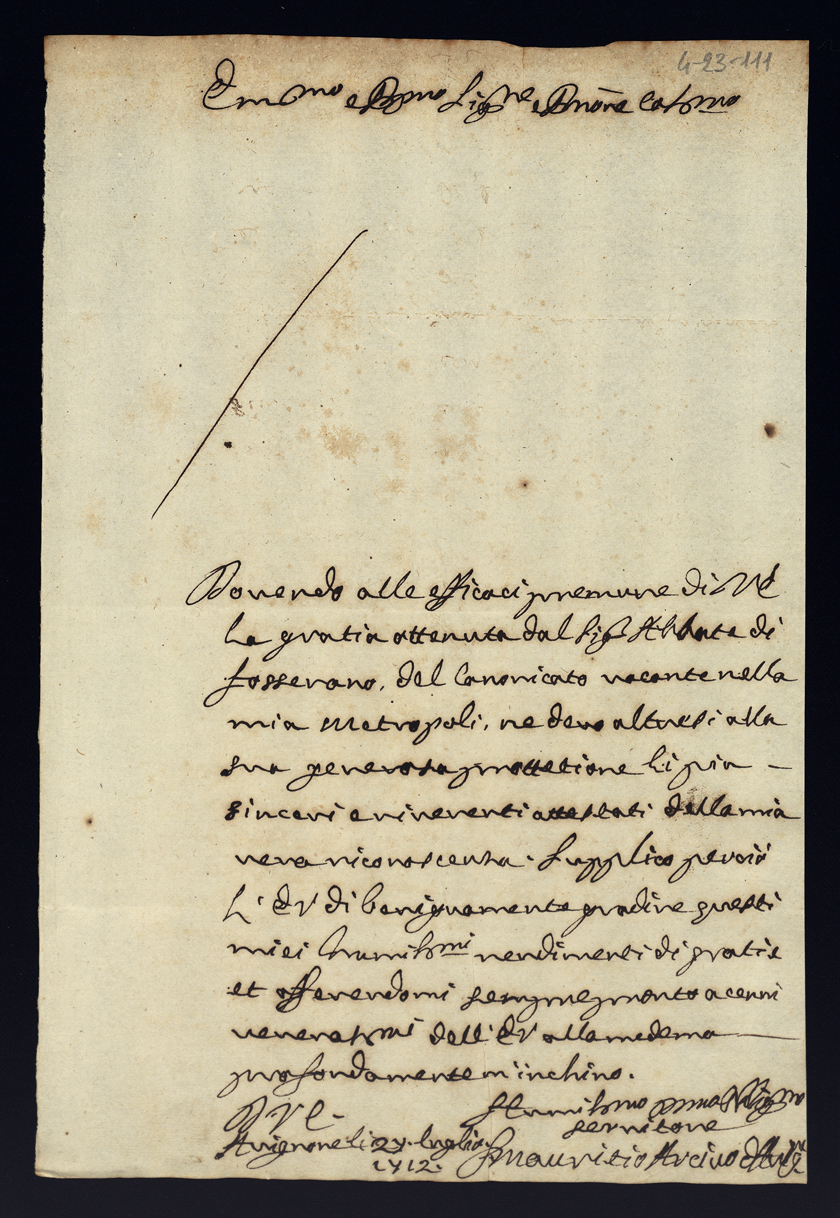 4-23-111
Em.mo e R.mo Sig.re e P.rone Col.mo
Dovendo alle efficaci premure di V.E.
la gratia ottenuta dal Sig.r Abbate di
Fosserano, del Canonicato vacante nella
mia Metropoli, ne devo altresi alla
sua generosa prottetione li più
sinceri e riverenti attestati della mia
vera riconoscenza. Supplico perciò
L'E.V. di benignamente gradire questi
miei humil.mi rendimenti di gratie
et offerendomi sempre pronto a cenni
venerat.mi dell'E.V. alla medema
profondamente m'inchino.
D. V. E.
Humil.mo Oblig.mo
servitore
Avignone li 27. luglio
1712.
Mauritio Arcivo d'Avig.ne